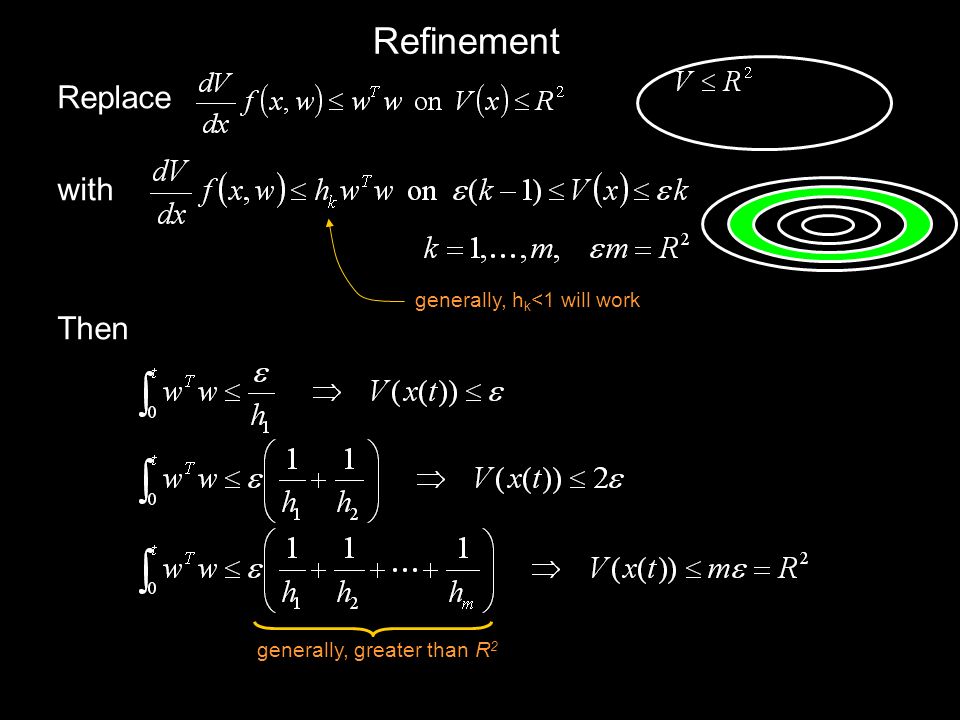 Refinement
Replace dV/dx f(x, w) ≤ wᵀw on V(x) ≤ R²
V ≤ R²
with dV/dx f(x, w) ≤ hₖwᵀw on ε(k−1) ≤ V(x) ≤ εk
k = 1,…,m, εm = R²
generally, hₖ<1 will work
Then
∫₀ᵗ wᵀw ≤ ε/h₁ ⇒ V(x(t)) ≤ ε
∫₀ᵗ wᵀw ≤ ε(1/h₁ + 1/h₂) ⇒ V(x(t)) ≤ 2ε
∫₀ᵗ wᵀw ≤ ε(1/h₁ + 1/h₂ + ⋯ + 1/hₘ) ⇒ V(x(t)) ≤ mε = R²
generally, greater than R²